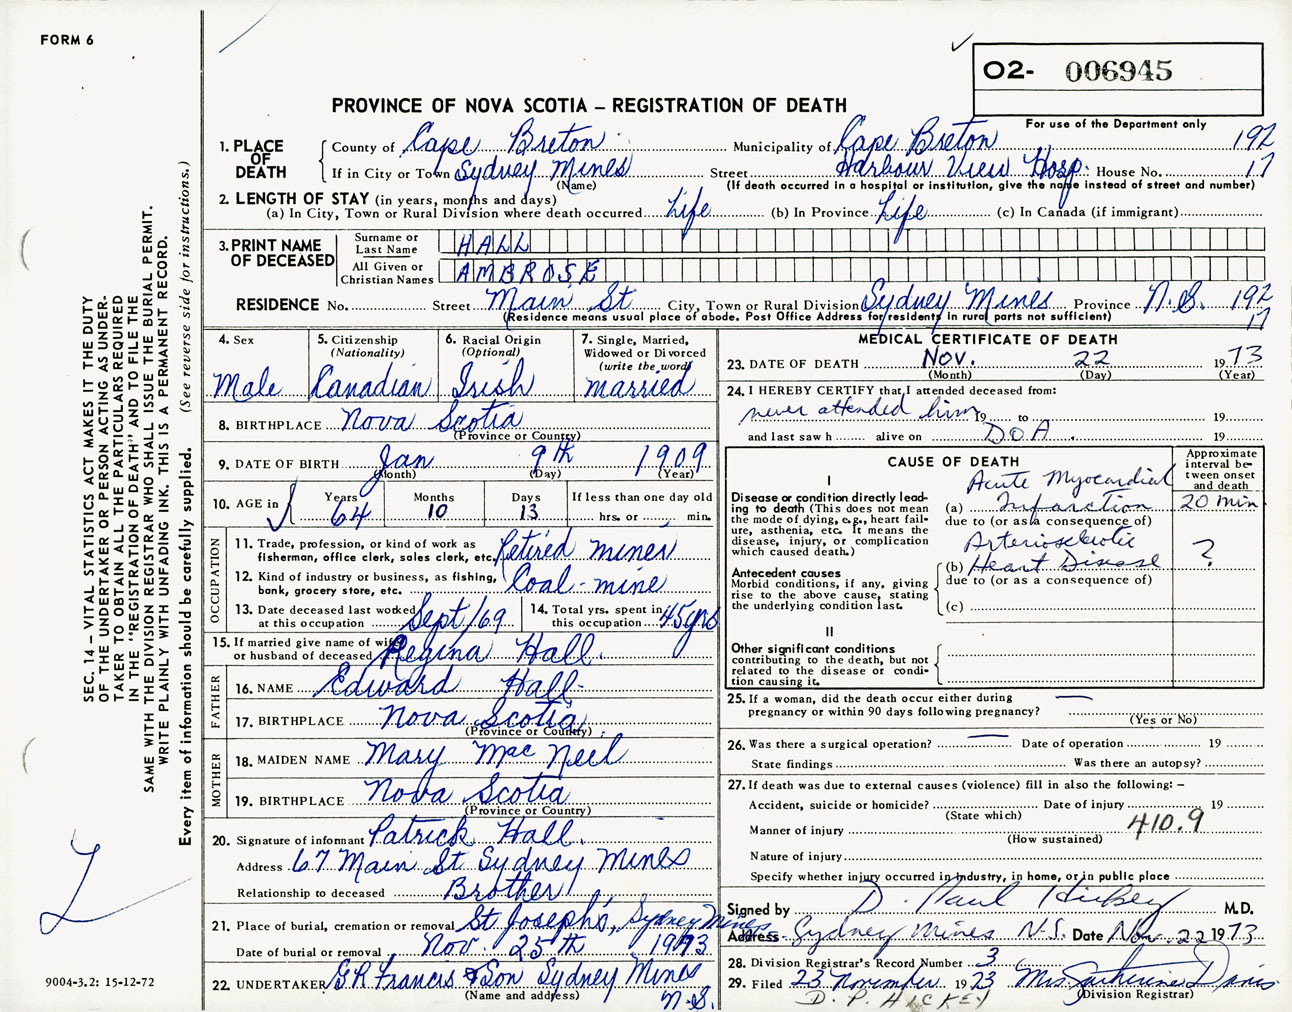 FORM 6
O2- 006945
PROVINCE OF NOVA SCOTIA – REGISTRATION OF DEATH
For use of the Department only
1. PLACE OF DEATH
County of Cape Breton Municipality of Cape Breton 192
If in City or Town Sydney Mines Street Harbour View Hosp. House No. 17
(Name) (If death occurred in a hospital or institution, give the name instead of street and number)
2. LENGTH OF STAY (in years, months and days)
(a) In City, Town or Rural Division where death occurred Life (b) In Province Life (c) In Canada (if immigrant)
3. PRINT NAME OF DECEASED
Surname or Last Name HALL
All Given or Christian Names AMBROSE
RESIDENCE No. Street Main St City, Town or Rural Division Sydney Mines Province N.S. 192
(Residence means usual place of abode. Post Office Address for residents in rural parts not sufficient) 17
4. Sex
Male
5. Citizenship
(Nationality)
Canadian
6. Racial Origin
(Optional)
Irish
7. Single, Married,
Widowed or Divorced
(write the word)
married
8. BIRTHPLACE Nova Scotia
(Province or Country)
9. DATE OF BIRTH Jan 9th 1909
(Month) (Day) (Year)
10. AGE in
Years Months Days If less than one day old
64 10 13 hrs. or min.
OCCUPATION
11. Trade, profession, or kind of work as
fisherman, office clerk, sales clerk, etc. Retired miner
12. Kind of industry or business, as fishing,
bank, grocery store, etc. Coal-mine
13. Date deceased last worked
at this occupation Sept/69
14. Total yrs. spent in
this occupation 45 yrs
15. If married give name of wife
or husband of deceased Regina Hall.
FATHER
16. NAME Edward Hall
17. BIRTHPLACE Nova Scotia
(Province or Country)
MOTHER
18. MAIDEN NAME Mary Mac Neil
19. BIRTHPLACE Nova Scotia
(Province or Country)
20. Signature of informant Patrick Hall.
Address 67 Main St Sydney Mines
Relationship to deceased Brother
21. Place of burial, cremation or removal St Joseph's, Sydney Mines
Date of burial or removal Nov. 25th 1973
22. UNDERTAKER G.R. Francis & Son Sydney Mines
(Name and address) N.S.
MEDICAL CERTIFICATE OF DEATH
23. DATE OF DEATH Nov. 22 1973
(Month) (Day) (Year)
24. I HEREBY CERTIFY that I attended deceased from:
never attended him 19 to 19
and last saw h alive on DOA. 19
CAUSE OF DEATH
Approximate interval be-
tween onset
and death
I
Disease or condition directly lead-
ing to death (This does not mean
the mode of dying, e.g., heart fail-
ure, asthenia, etc. It means the
disease, injury, or complication
which caused death.)
Acute Myocardial
(a) Infarction 20 min
due to (or as a consequence of)
Antecedent causes
Morbid conditions, if any, giving
rise to the above cause, stating
the underlying condition last.
Arteriosclerotic
(b) Heart Disease ?
due to (or as a consequence of)
(c)
II
Other significant conditions
contributing to the death, but not
related to the disease or condi-
tion causing it.
25. If a woman, did the death occur either during
pregnancy or within 90 days following pregnancy?
(Yes or No)
26. Was there a surgical operation? Date of operation 19
State findings Was there an autopsy?
27. If death was due to external causes (violence) fill in also the following: –
Accident, suicide or homicide? Date of injury 19
(State which)
Manner of injury 410.9
(How sustained)
Nature of injury
Specify whether injury occurred in industry, in home, or in public place
Signed by D. Paul Hickey M.D.
Address Sydney Mines N.S. Date Nov. 22 1973
28. Division Registrar's Record Number 3
29. Filed 23 November 1973 Mrs. Catherine Davis
D. P. HICKEY (Division Registrar)
SEC. 14 – VITAL STATISTICS ACT MAKES IT THE DUTY
OF THE UNDERTAKER OR PERSON ACTING AS UNDER-
TAKER TO OBTAIN ALL THE PARTICULARS REQUIRED
IN THE "REGISTRATION OF DEATH" AND TO FILE THE
SAME WITH THE DIVISION REGISTRAR WHO SHALL ISSUE THE BURIAL PERMIT.
WRITE PLAINLY WITH UNFADING INK. THIS IS A PERMANENT RECORD.
Every item of information should be carefully supplied. (See reverse side for instructions.)
9004-3.2: 15-12-72